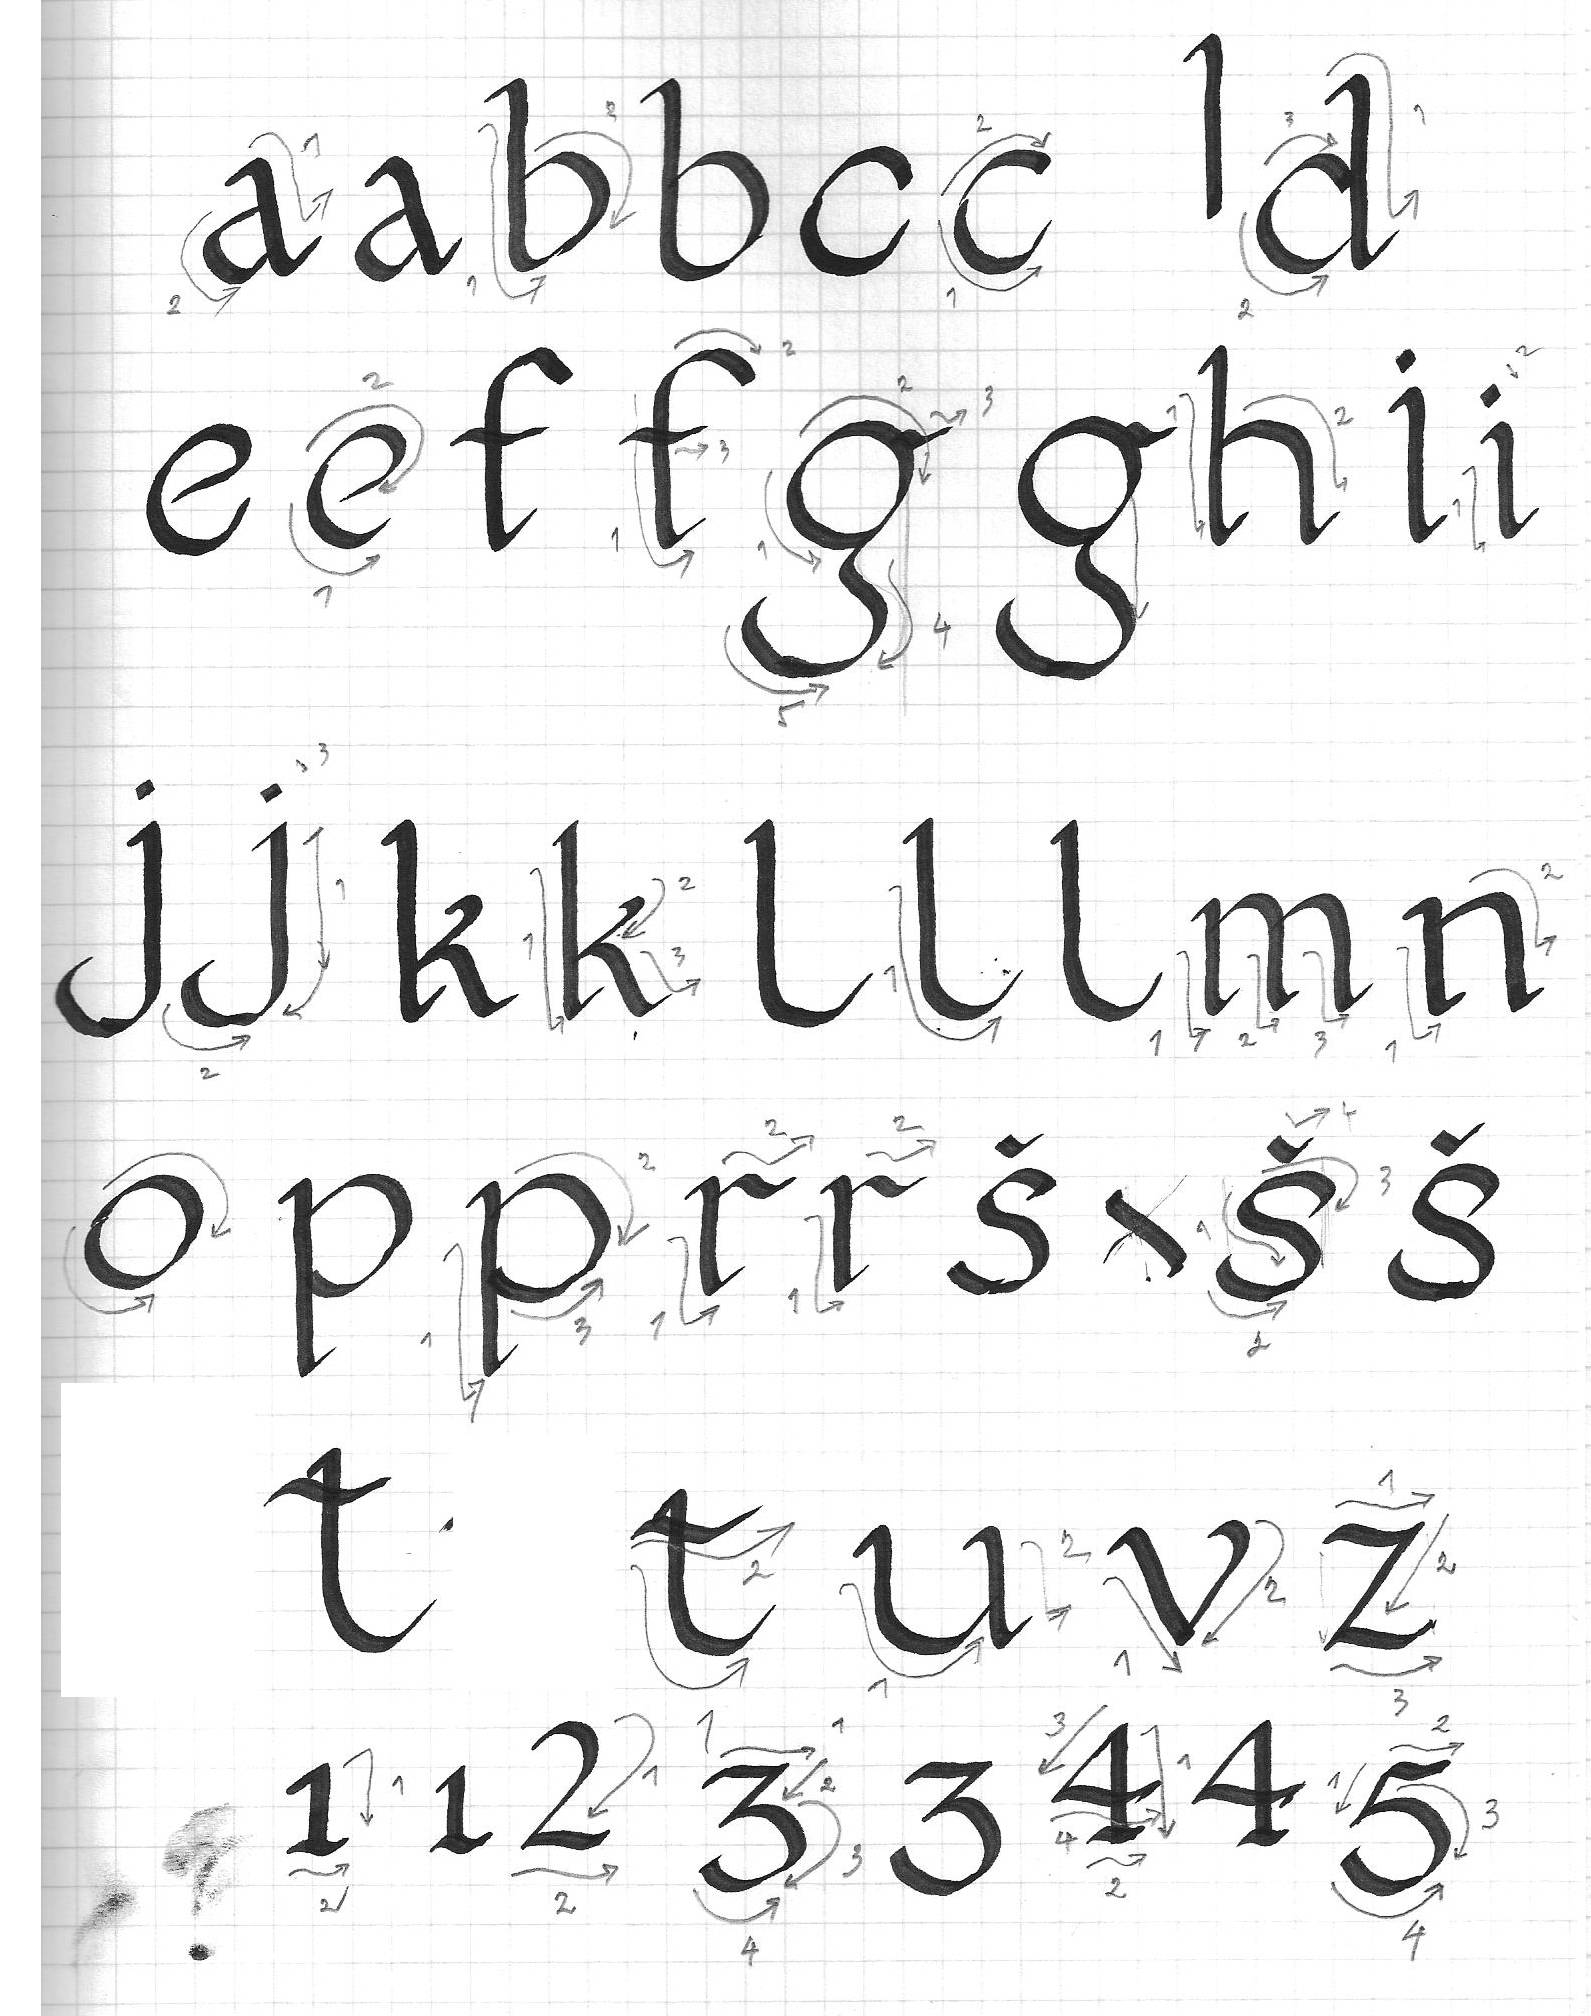 a a b b c c l d
e e f f g g h i i
j j k k l l l m n
o p p r r š x š š
t t u v z
1 1 2 3 3 4 4 5